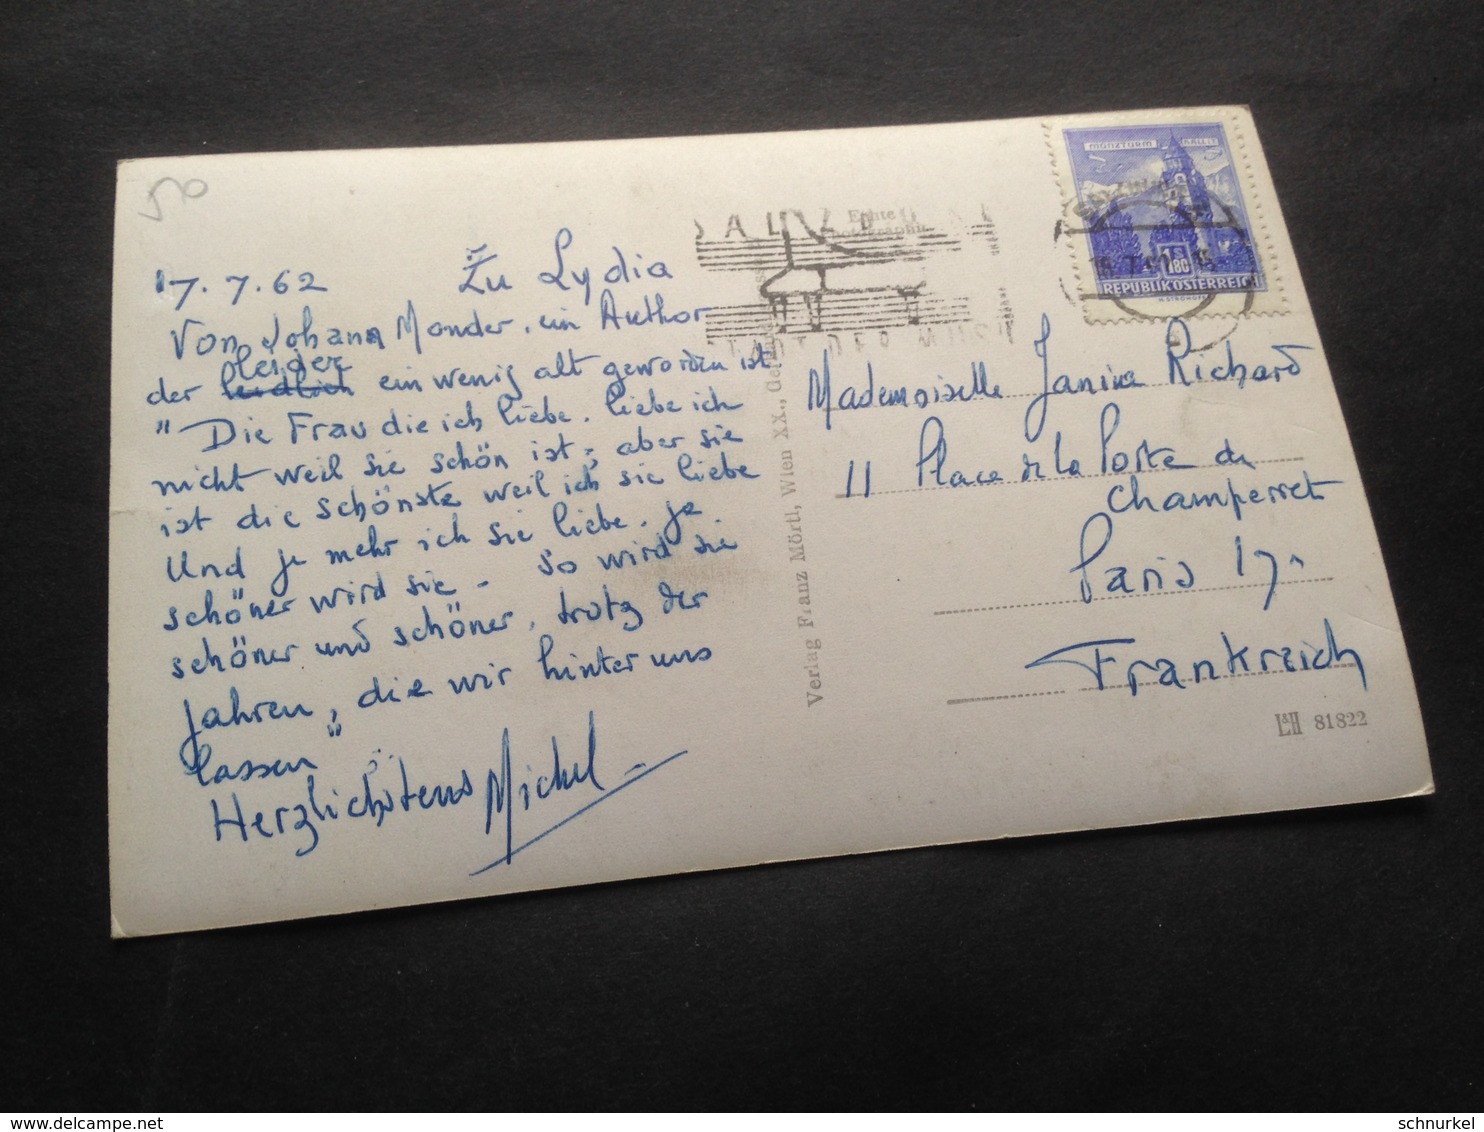 520
17.7.62 Zu Lydia
Von Johann Monder, ein Author
leider
der ein wenig alt geworden ist
"Die Frau die ich liebe, liebe ich
nicht weil sie schön ist, aber sie
ist die schönste weil ich sie liebe
Und je mehr ich sie liebe, je
schöner wird sie - so wird sie
schöner und schöner, trotz der
Jahren, die wir hinter uns
lassen"
Herzlichstens Michel
Echte
Photographie
SALZB
STADT DER MUSI
Verlag Franz Mörtl, Wien XX.,
MÜNZTURM HALL I T
1.80
REPUBLIK ÖSTERREICH
Mademoiselle Janine Richard
11 Place de la Porte de
Champerret
Paris 17e
Frankreich
L&H 81822
schnurkel